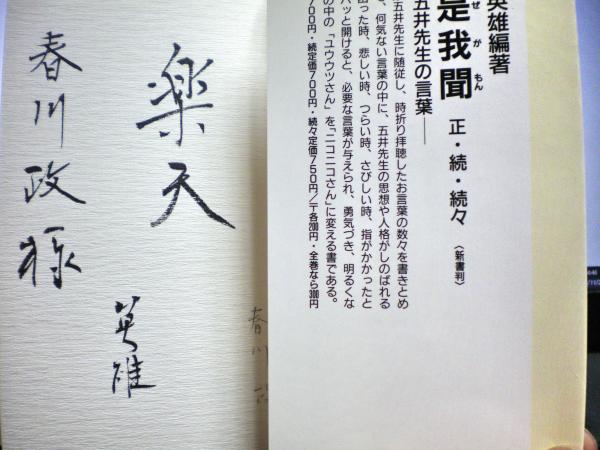 英雄編著
是我聞
ぜがもん
正・続・続々
〈新書判〉
五井先生の言葉――
五井先生に随従し、時折り拝聴したお言葉の数々を書きとめ
、何気ない言葉の中に、五井先生の思想や人格がしのばれる
困った時、悲しい時、つらい時、さびしい時、指がかかったと
パッと開けると、必要な言葉が与えられ、勇気づき、明るくな
の中の「ユウウツさん」を「ニコニコさん」に変える書である。
700円・続定価700円・続々定価750円/〒各200円・全巻なら300円
楽天
英雄
春川政様
春川